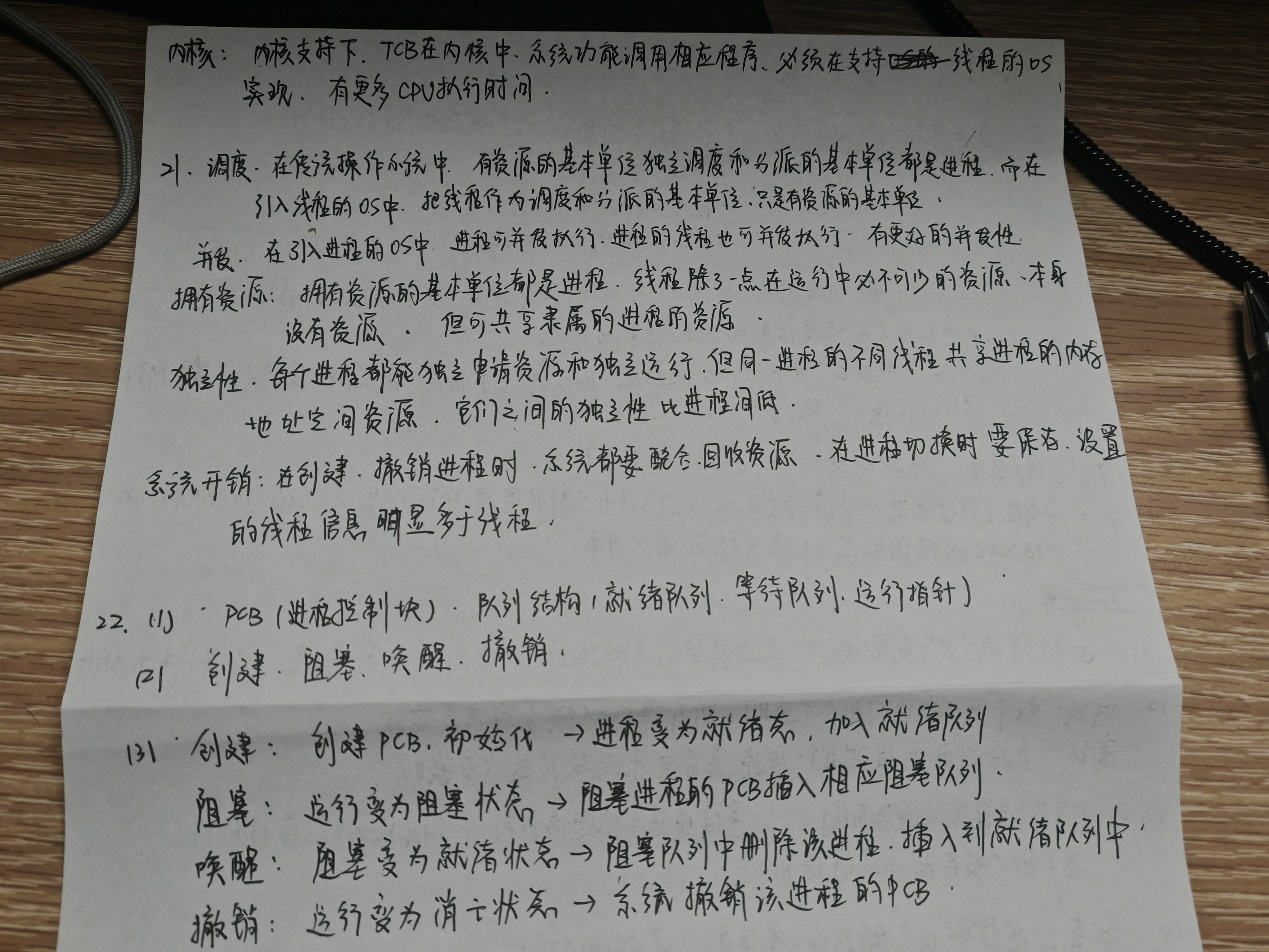 内核： 内核支持下．TCB在内核中、系统功能调用相应程序、必须在支持线程的OS
实现．有更多CPU执行时间．
21．调度．在传统操作系统中．有资源的基本单位独立调度和分派的基本单位都是进程．而在
引入线程的OS中．把线程作为调度和分派的基本单位．只是有资源的基本单位．
并发．在引入进程的OS中 进程可并发执行．进程的线程也可并发执行．有更好的并发性．
拥有资源： 拥有资源的基本单位都是进程．线程除了一点在运行中必不可少的资源、本身
没有资源．但可共享隶属的进程的资源．
独立性．每个进程都能独立申请资源和独立运行．但同一进程的不同线程共享进程的内存
地址空间资源．它们之间的独立性比进程间低．
系统开销：在创建．撤销进程时．系统都要配合．回收资源．在进程切换时要保存．设置
的线程信息明显多于线程．
22．(1) PCB(进程控制块)．队列结构(就绪队列．等待队列．运行指针)
(2) 创建．阻塞．唤醒．撤销．
(3) 创建： 创建PCB．初始化 → 进程变为就绪态．加入就绪队列
阻塞： 运行变为阻塞状态 → 阻塞进程的PCB插入相应阻塞队列．
唤醒： 阻塞变为就绪状态 → 阻塞队列中删除该进程．插入到就绪队列中．
撤销： 运行变为消亡状态 → 系统撤销该进程的PCB．